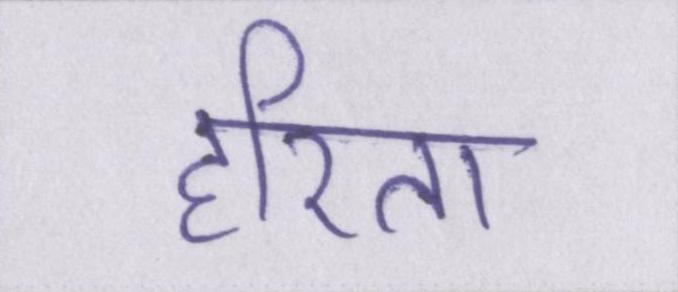 हरिता